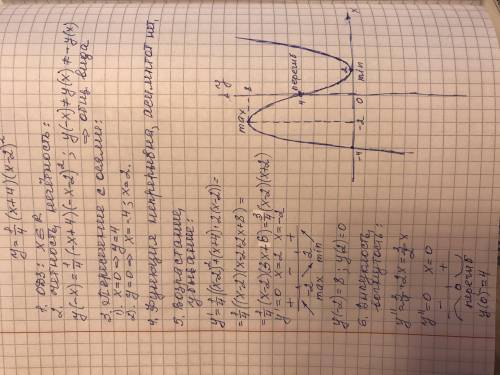 y = 1/4 (x+4)(x-2)²
1. ОВЗ: x ∈ R
2. Четность, нечётность:
y(-x) = 1/4 (-x+4)(-x-2)²; y(-x) ≠ y(x) ≠ -y(x)
⇒ общ. вида
3. Пересечение с осями:
1). x=0 ⇒ y=4
2). y=0 ⇒ x=-4; x=2.
4. Функция непрерывна, асимптот нет.
5. Возрастание, убывание:
y' = 1/4 ((x-2)² + (x+4)·2(x-2)) =
= 1/4 ((x-2)(x-2+2x+8)) =
= 1/4 (x-2)(3x+6) = 3/4 (x-2)(x+2)
y'=0 x=2 x=-2
+ - +
-2 2
max min
y(-2)=8; y(2)=0
6. Выпуклость, вогнутость:
y'' = 3/4·2x = 3/2 x
y''=0 x=0
- +
0
перегиб
y(0)=4
y
max
8
4
перегиб
-4
-2
0
2
min
x